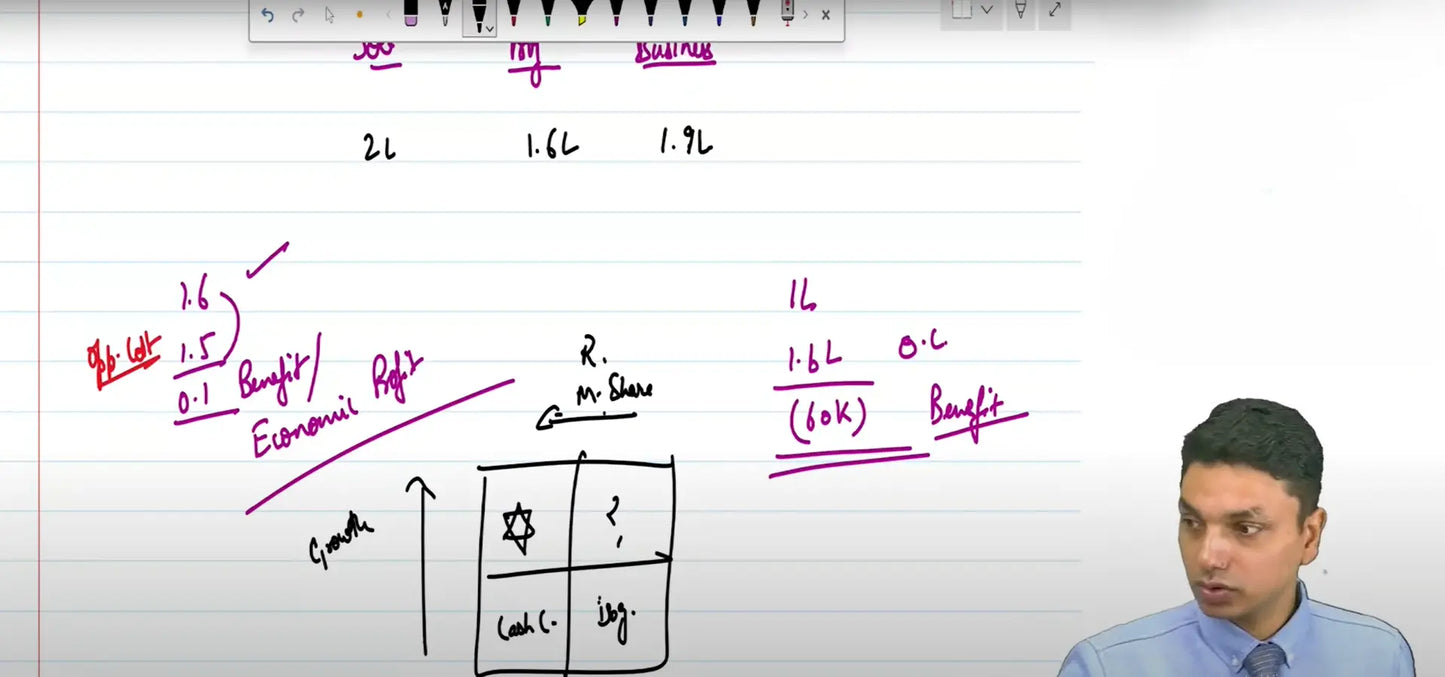 Job Business
2L 1.6L 1.9L
1.6
Opp. Cost 1.5
0.1 Benefit/
Economic Profit
R.
M. Share
Growth
?
Cash C. Dog.
1L
1.6L O.C
(60K) Benefit